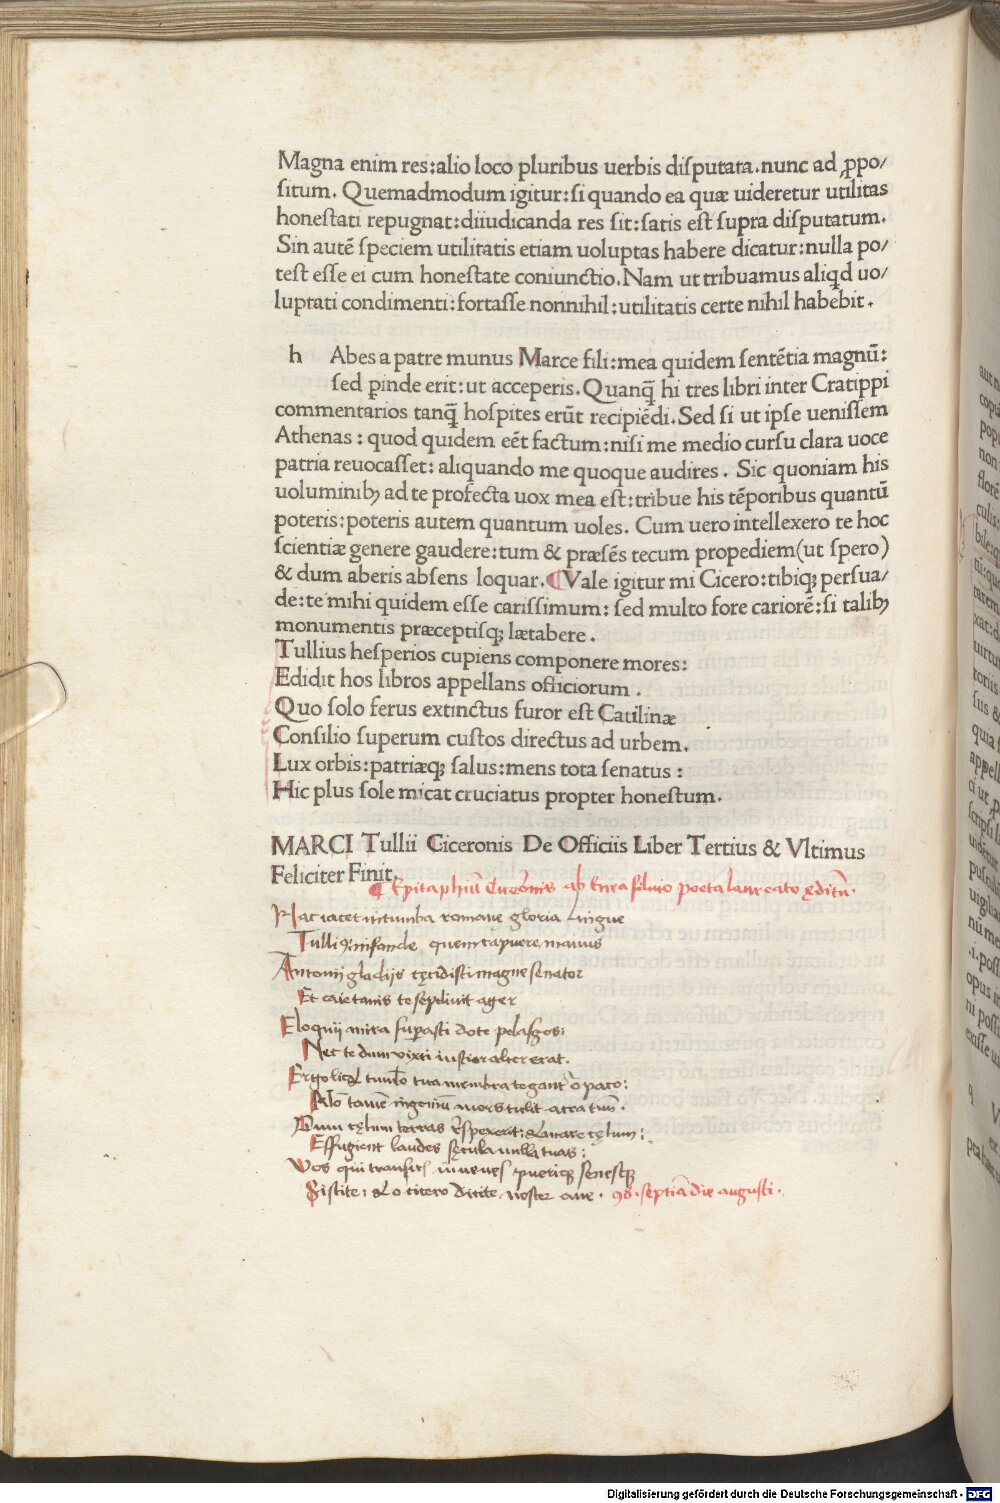 Magna enim res:alio loco pluribus uerbis disputata.nunc ad ꝓpo/
situm. Quemadmodum igitur:si quando ea quæ uideretur utilitas
honestati repugnat:diiudicanda res sit:satis est supra disputatum.
Sin autē speciem utilitatis etiam uoluptas habere dicatur:nulla po/
test esse ei cum honestate coniunctio.Nam ut tribuamus aliqd uo/
luptati condimenti:fortasse nonnihil:utilitatis certe nihil habebit.
h Abes a patre munus Marce fili:mea quidem sentētia magnū:
sed ꝑinde erit:ut acceperis.Quanq̄ hi tres libri inter Cratippi
commentarios tanq̄ hospites erūt recipiēdi.Sed si ut ipse uenissem
Athenas: quod quidem eēt factum:nisi me medio cursu clara uoce
patria reuocasset: aliquando me quoque audires. Sic quoniam his
uoluminibꝫ ad te profecta uox mea est:tribue his tēporibus quantū
poteris:poteris autem quantum uoles. Cum uero intellexero te hoc
scientiæ genere gaudere:tum & præsēs tecum propediem(ut spero)
& dum aberis absens loquar. ¶Vale igitur mi Cicero:tibiqꝫ persua/
de:te mihi quidem esse carissimum: sed multo fore cariorē:si talibꝫ
monumentis præceptisqꝫ lætabere.
Tullius hesperios cupiens componere mores:
Edidit hos libros appellans officiorum.
Quo solo ferus extinctus furor est Catilinæ
Consilio superum custos directus ad urbem.
Lux orbis:patriæqꝫ salus:mens tota senatus:
Hic plus sole micat cruciatus propter honestum.
MARCI Tullii Ciceronis De Officiis Liber Tertius & Vltimus
Feliciter Finit.
¶ Epitaphiū Cicerōnis ab Enea siluio poeta laureato ęditū.
Hac iacet in tumba romane gloria lingue
Tulliꝰ: nifande quem rapuere manus
Antonij gladijs cęcidisti magne senator
Et caietanis te sepeliuit ager
Eloquij mira suꝑasti dote pelasgos:
Nec te dum vixti iustior alter erat.
Ergo licꝫ tumlo tua membra tegant̄ o pato:
Nō tamē ingeniū mors tulit atra tuū.
Dum cęlum terras respexerit: & mare cęlum:
Effugient laudes sęcula nulla tuas:
Vos qui transitis iuuenes pueriqꝫ senesqꝫ
Sistite: & o cicero dicite noster aue. 98. septīa die augusti.